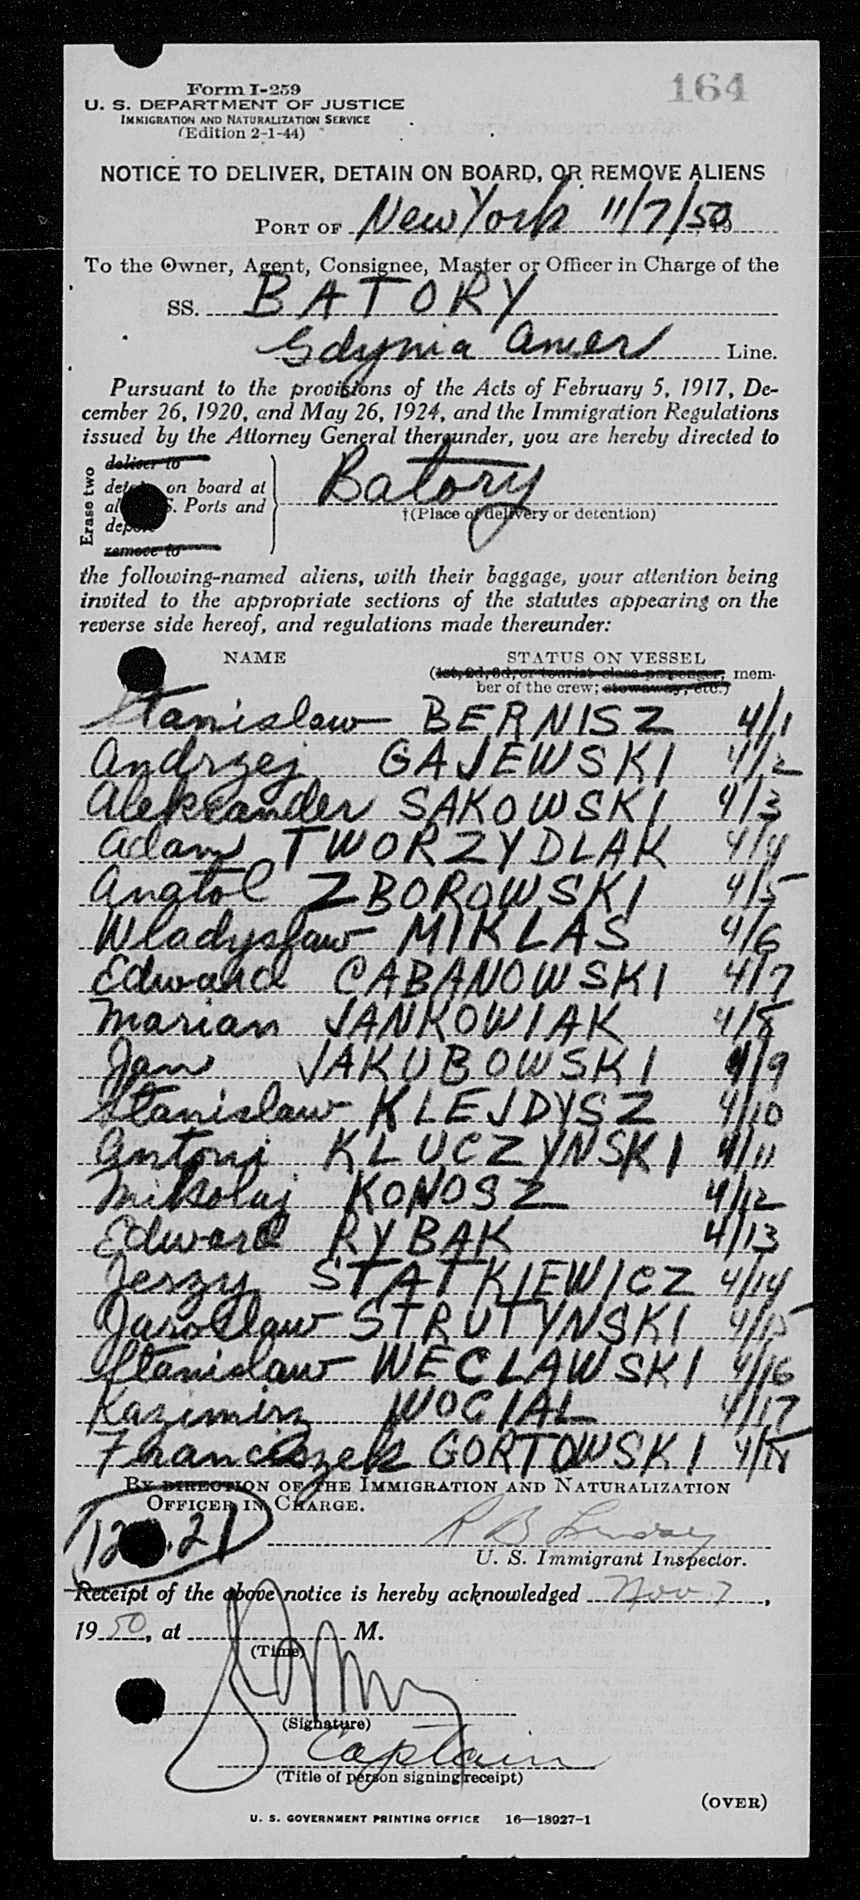 164
Form I-259
U. S. DEPARTMENT OF JUSTICE
IMMIGRATION AND NATURALIZATION SERVICE
(Edition 2-1-44)
NOTICE TO DELIVER, DETAIN ON BOARD, OR REMOVE ALIENS
PORT OF New York 11/7/50 19
To the Owner, Agent, Consignee, Master or Officer in Charge of the
SS. BATORY
Gdynia Amer Line.
Pursuant to the provisions of the Acts of February 5, 1917, De-
cember 26, 1920, and May 26, 1924, and the Immigration Regulations
issued by the Attorney General thereunder, you are hereby directed to
Erase two
deliver to
on board at
S. Ports and
remove to
Batory
†(Place of delivery or detention)
the following-named aliens, with their baggage, your attention being
invited to the appropriate sections of the statutes appearing on the
reverse side hereof, and regulations made thereunder:
NAME STATUS ON VESSEL
(1st, 2d, 3d, or tourist class passenger, mem-
ber of the crew; stowaway, etc.)
Stanislaw BERNISZ 4/1
Andrzej GAJEWSKI 4/2
Aleksander SAKOWSKI 4/3
Adam TWORZYDLAK 4/4
Anatol ZBOROWSKI 4/5
Wladyslaw MIKLAS 4/6
Edward CABANOWSKI 4/7
Marian JANKOWIAK 4/8
Jan JAKUBOWSKI 4/9
Stanislaw KLEJDYSZ 4/10
Antoni KLUCZYNSKI 4/11
Mikolaj KONOSZ 4/12
Edward RYBAK 4/13
Jerzy STATKIEWICZ 4/14
Jaroslaw STRUTYNSKI 4/15
Stanislaw WECLAWSKI 4/16
Kazimirz WOCIAL 4/17
Franciszek GORTOWSKI 4/18
BY DIRECTION OF THE IMMIGRATION AND NATURALIZATION
OFFICER IN CHARGE.
R B Lindsay
U. S. Immigrant Inspector.
Receipt of the above notice is hereby acknowledged Nov 7,
1950, at M.
(Time)
(Signature)
Captain
(Title of person signing receipt)
(OVER)
U. S. GOVERNMENT PRINTING OFFICE 16—18927-1